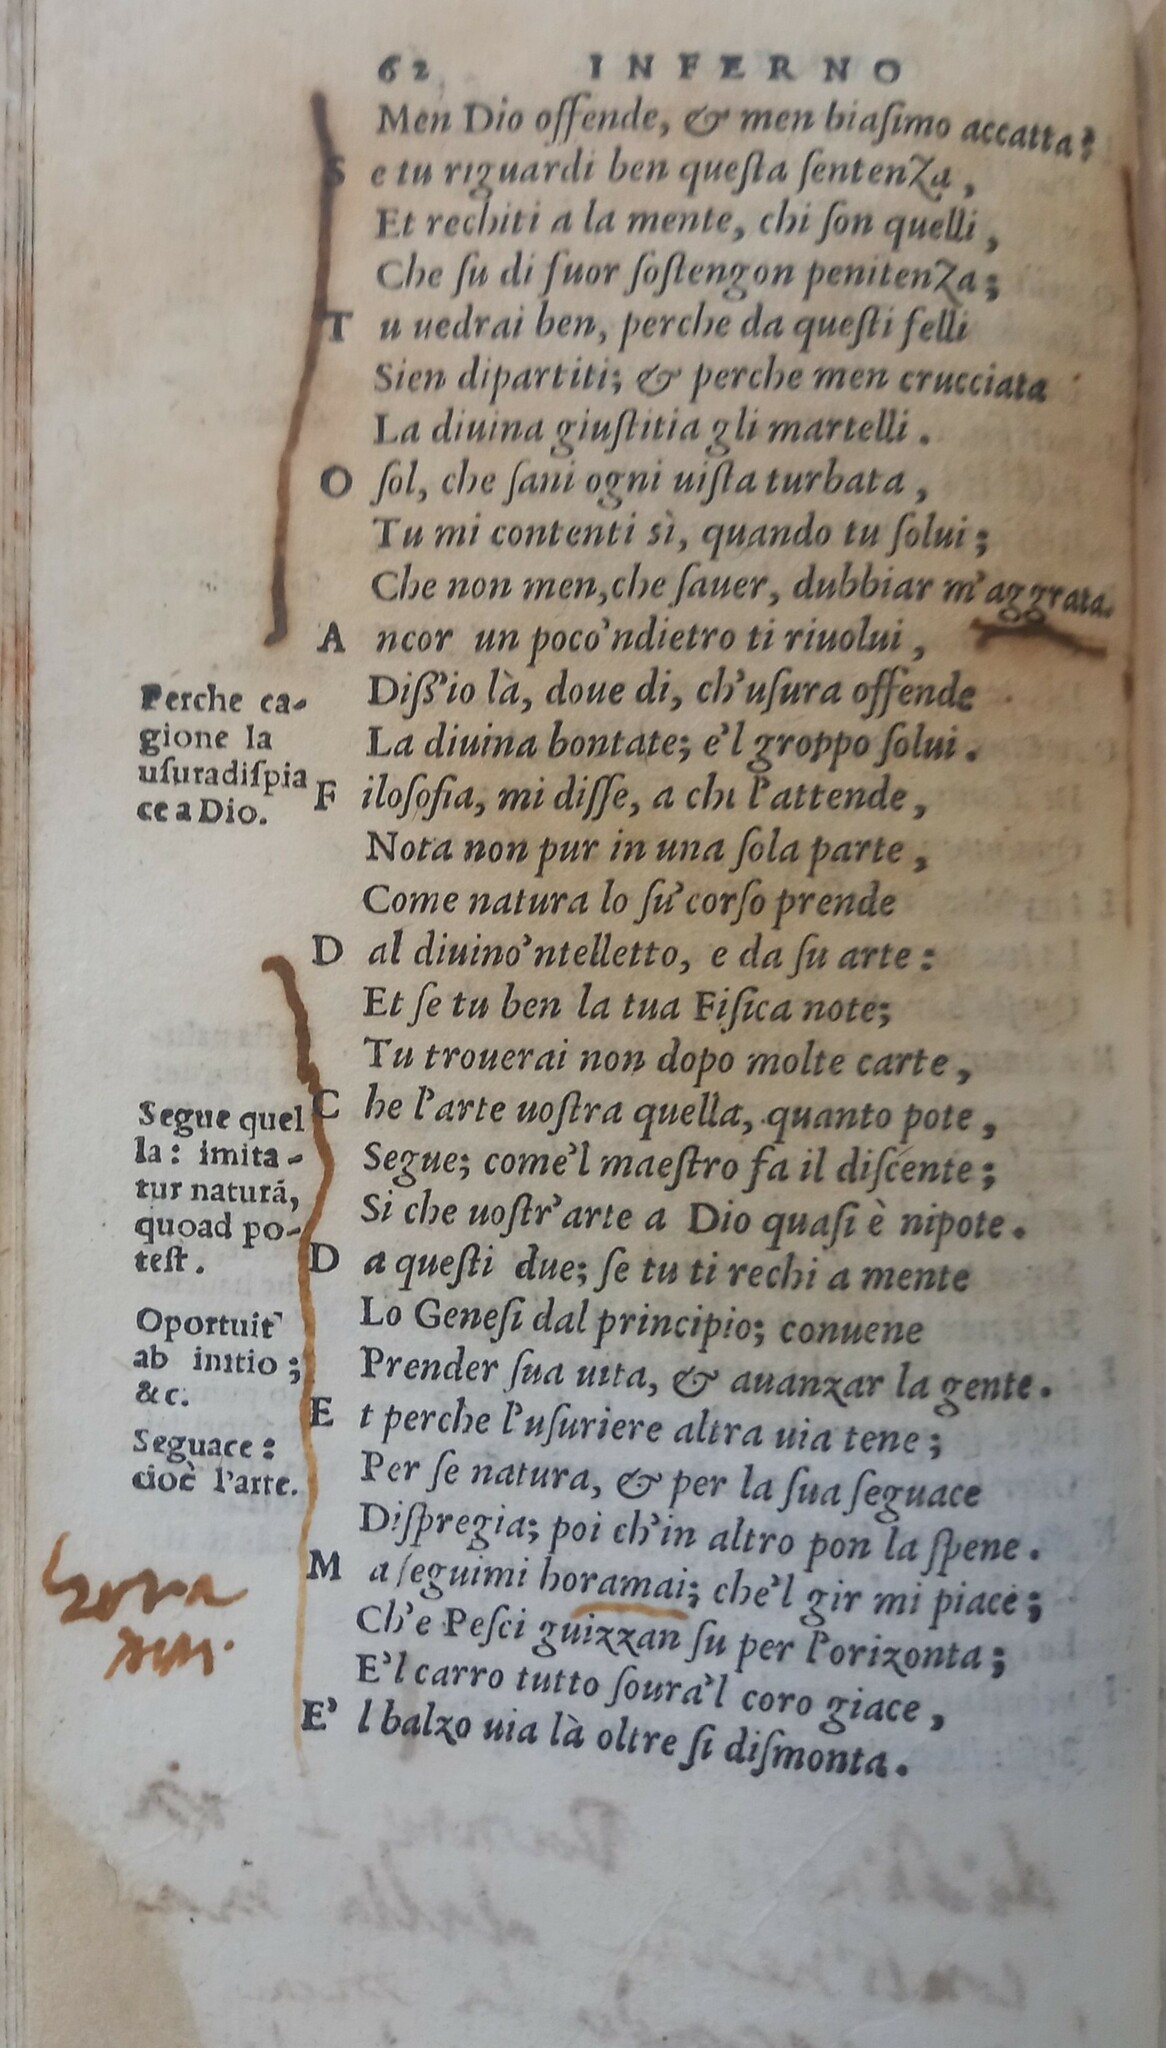 62 INFERNO
Men Dio offende, & men biaſimo accatta?
S e tu riguardi ben queſta ſentenza,
Et rechiti a la mente, chi ſon quelli,
Che ſu di fuor ſoſtengon penitenza;
T u uedrai ben, perche da queſti felli
Sien dipartiti; & perche men crucciata
La diuina giuſtitia gli martelli.
O ſol, che ſani ogni uiſta turbata,
Tu mi contenti sì, quando tu ſolui;
Che non men, che ſauer, dubbiar m'aggrata.
A ncor un poco'ndietro ti riuolui,
Diſſ'io là, doue di, ch'uſura offende
La diuina bontate; e'l groppo ſolui.
Perche ca-
gione la
uſuradiſpia
ce a Dio.
F iloſofia, mi diſſe, a chi l'attende,
Nota non pur in una ſola parte,
Come natura lo ſu' corſo prende
D al diuino'ntelletto, e da ſu arte:
Et ſe tu ben la tua Fiſica note;
Tu trouerai non dopo molte carte,
C he l'arte uoſtra quella, quanto pote,
Segue; come'l maeſtro fa il diſcente;
Si che uoſtr'arte a Dio quaſi è nipote.
Segue quel
la: imita-
tur naturã,
quoad po-
teſt.
D a queſti due; ſe tu ti rechi a mente
Lo Geneſi dal principio; conuene
Prender ſua uita, & auanzar la gente.
Oportuit
ab initio;
&c.
E t perche l'uſuriere altra uia tene;
Per ſe natura, & per la ſua ſeguace
Diſpregia; poi ch'in altro pon la ſpene.
Seguace:
cioè l'arte.
M a ſeguimi horamai; che'l gir mi piace;
Ch'e Peſci guizzan ſu per l'orizonta;
E'l carro tutto ſoura'l coro giace,
E' l balzo uia là oltre ſi diſmonta.